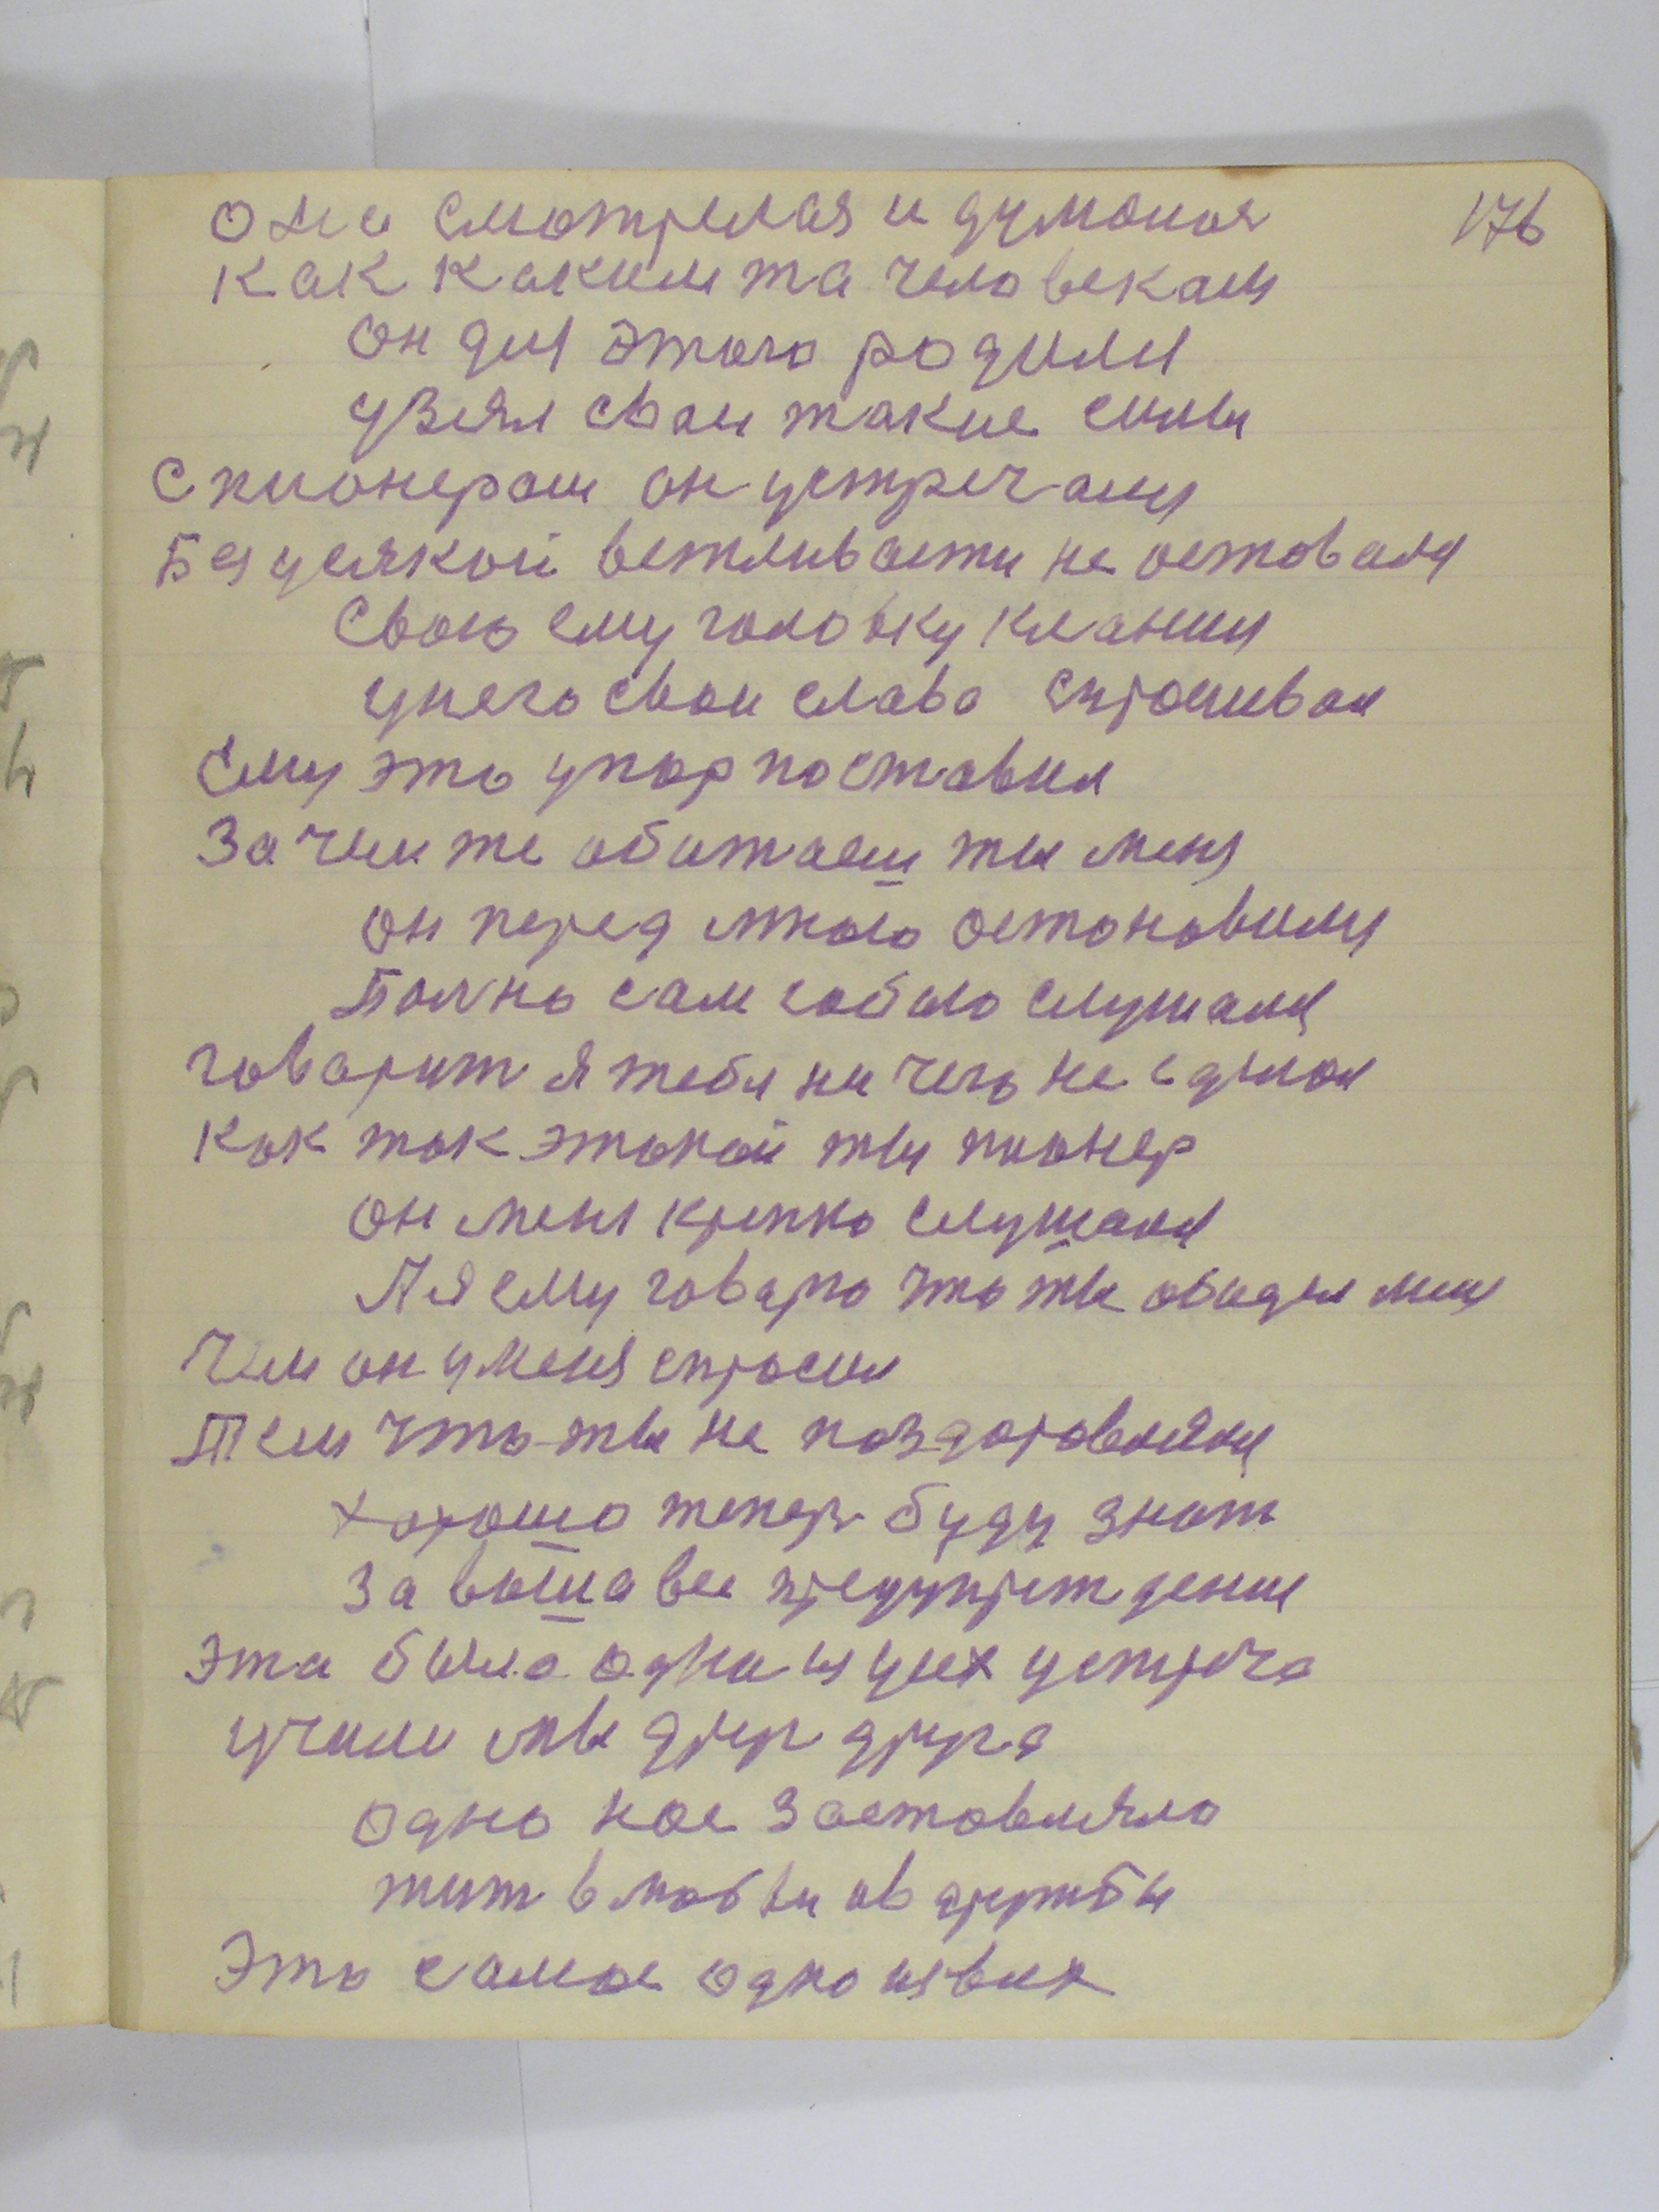 176
она смотрелая и думоная
как каким та человекам
он для этого родился
узеял свои такие силы
С пионерам он устречался
Без усякойветливасти не остовался
Свою ему головку кланил
у него свои слава спрошивал
Ему это упор поставил
За чем те обижаеш ты меня
он перед мною остоновился
Полно сам собою слушался
говарит я тебя ни чего не сделал
Как так этокой ты пионер
он меня крепко слушался
А я ему говарю что ты обидел меня
Чем он у меня спросил
Тем что ты не поздоровлялся
хорошо тепер буду знат
За воша все предупреждения
Эта была одна из усех устреча
учили мы друг друга
одно нас заставляло
жит в любви и в дружбы
Это самое одно из всих